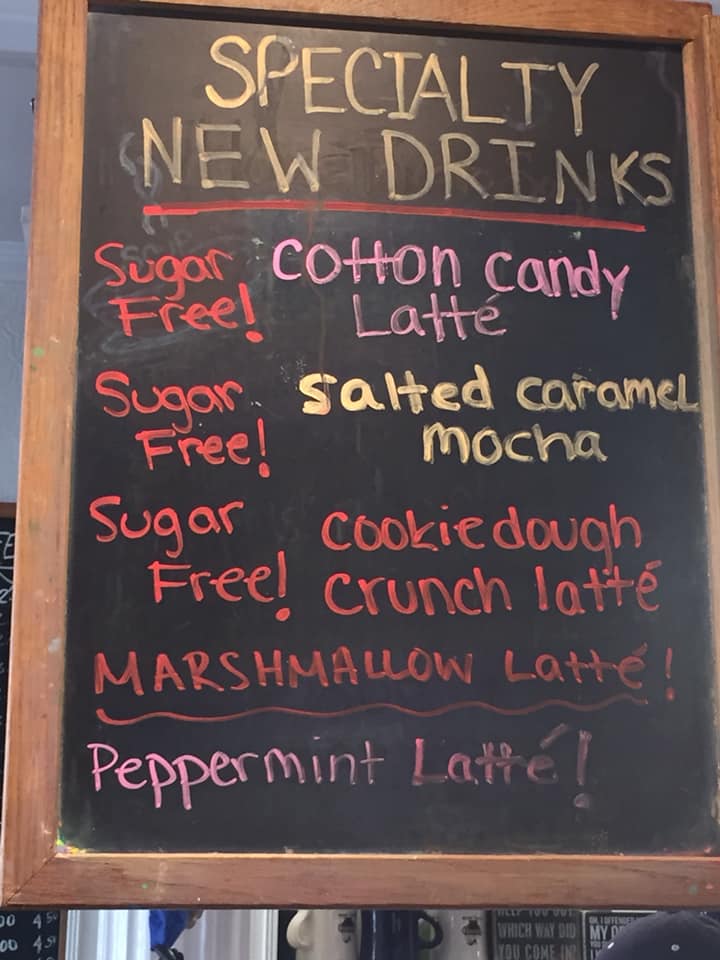 SPECIALTY
NEW DRINKS
Sugar Free! Cotton Candy Latté
Sugar Free! Salted caramel mocha
Sugar Free! Cookie dough crunch latté
MARSHMALLOW Latté!
Peppermint Latté!
00 4.50
00 4.50
WHICH WAY DID
YOU COME IN?